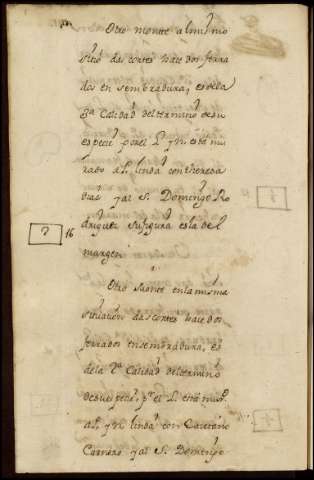 Otro monte al mismo
sitio das cortes hace dos ferra
dos en sembradura, es dela
3ª Calidad del termino de su
especie por el L. y N. está mu
rado al P. linda con theresa
Dias y al S. Domingo Ro
driguez su figura es la del
? 16 margen
Otro Monte en la misma
situación das cortes hace dos
ferrados en sembradura, es
dela 2ª Calidad del termino
de su especie, pr. el L. está mur.
al P. y N. linda con Caietano
Carnero y al S. Domingo